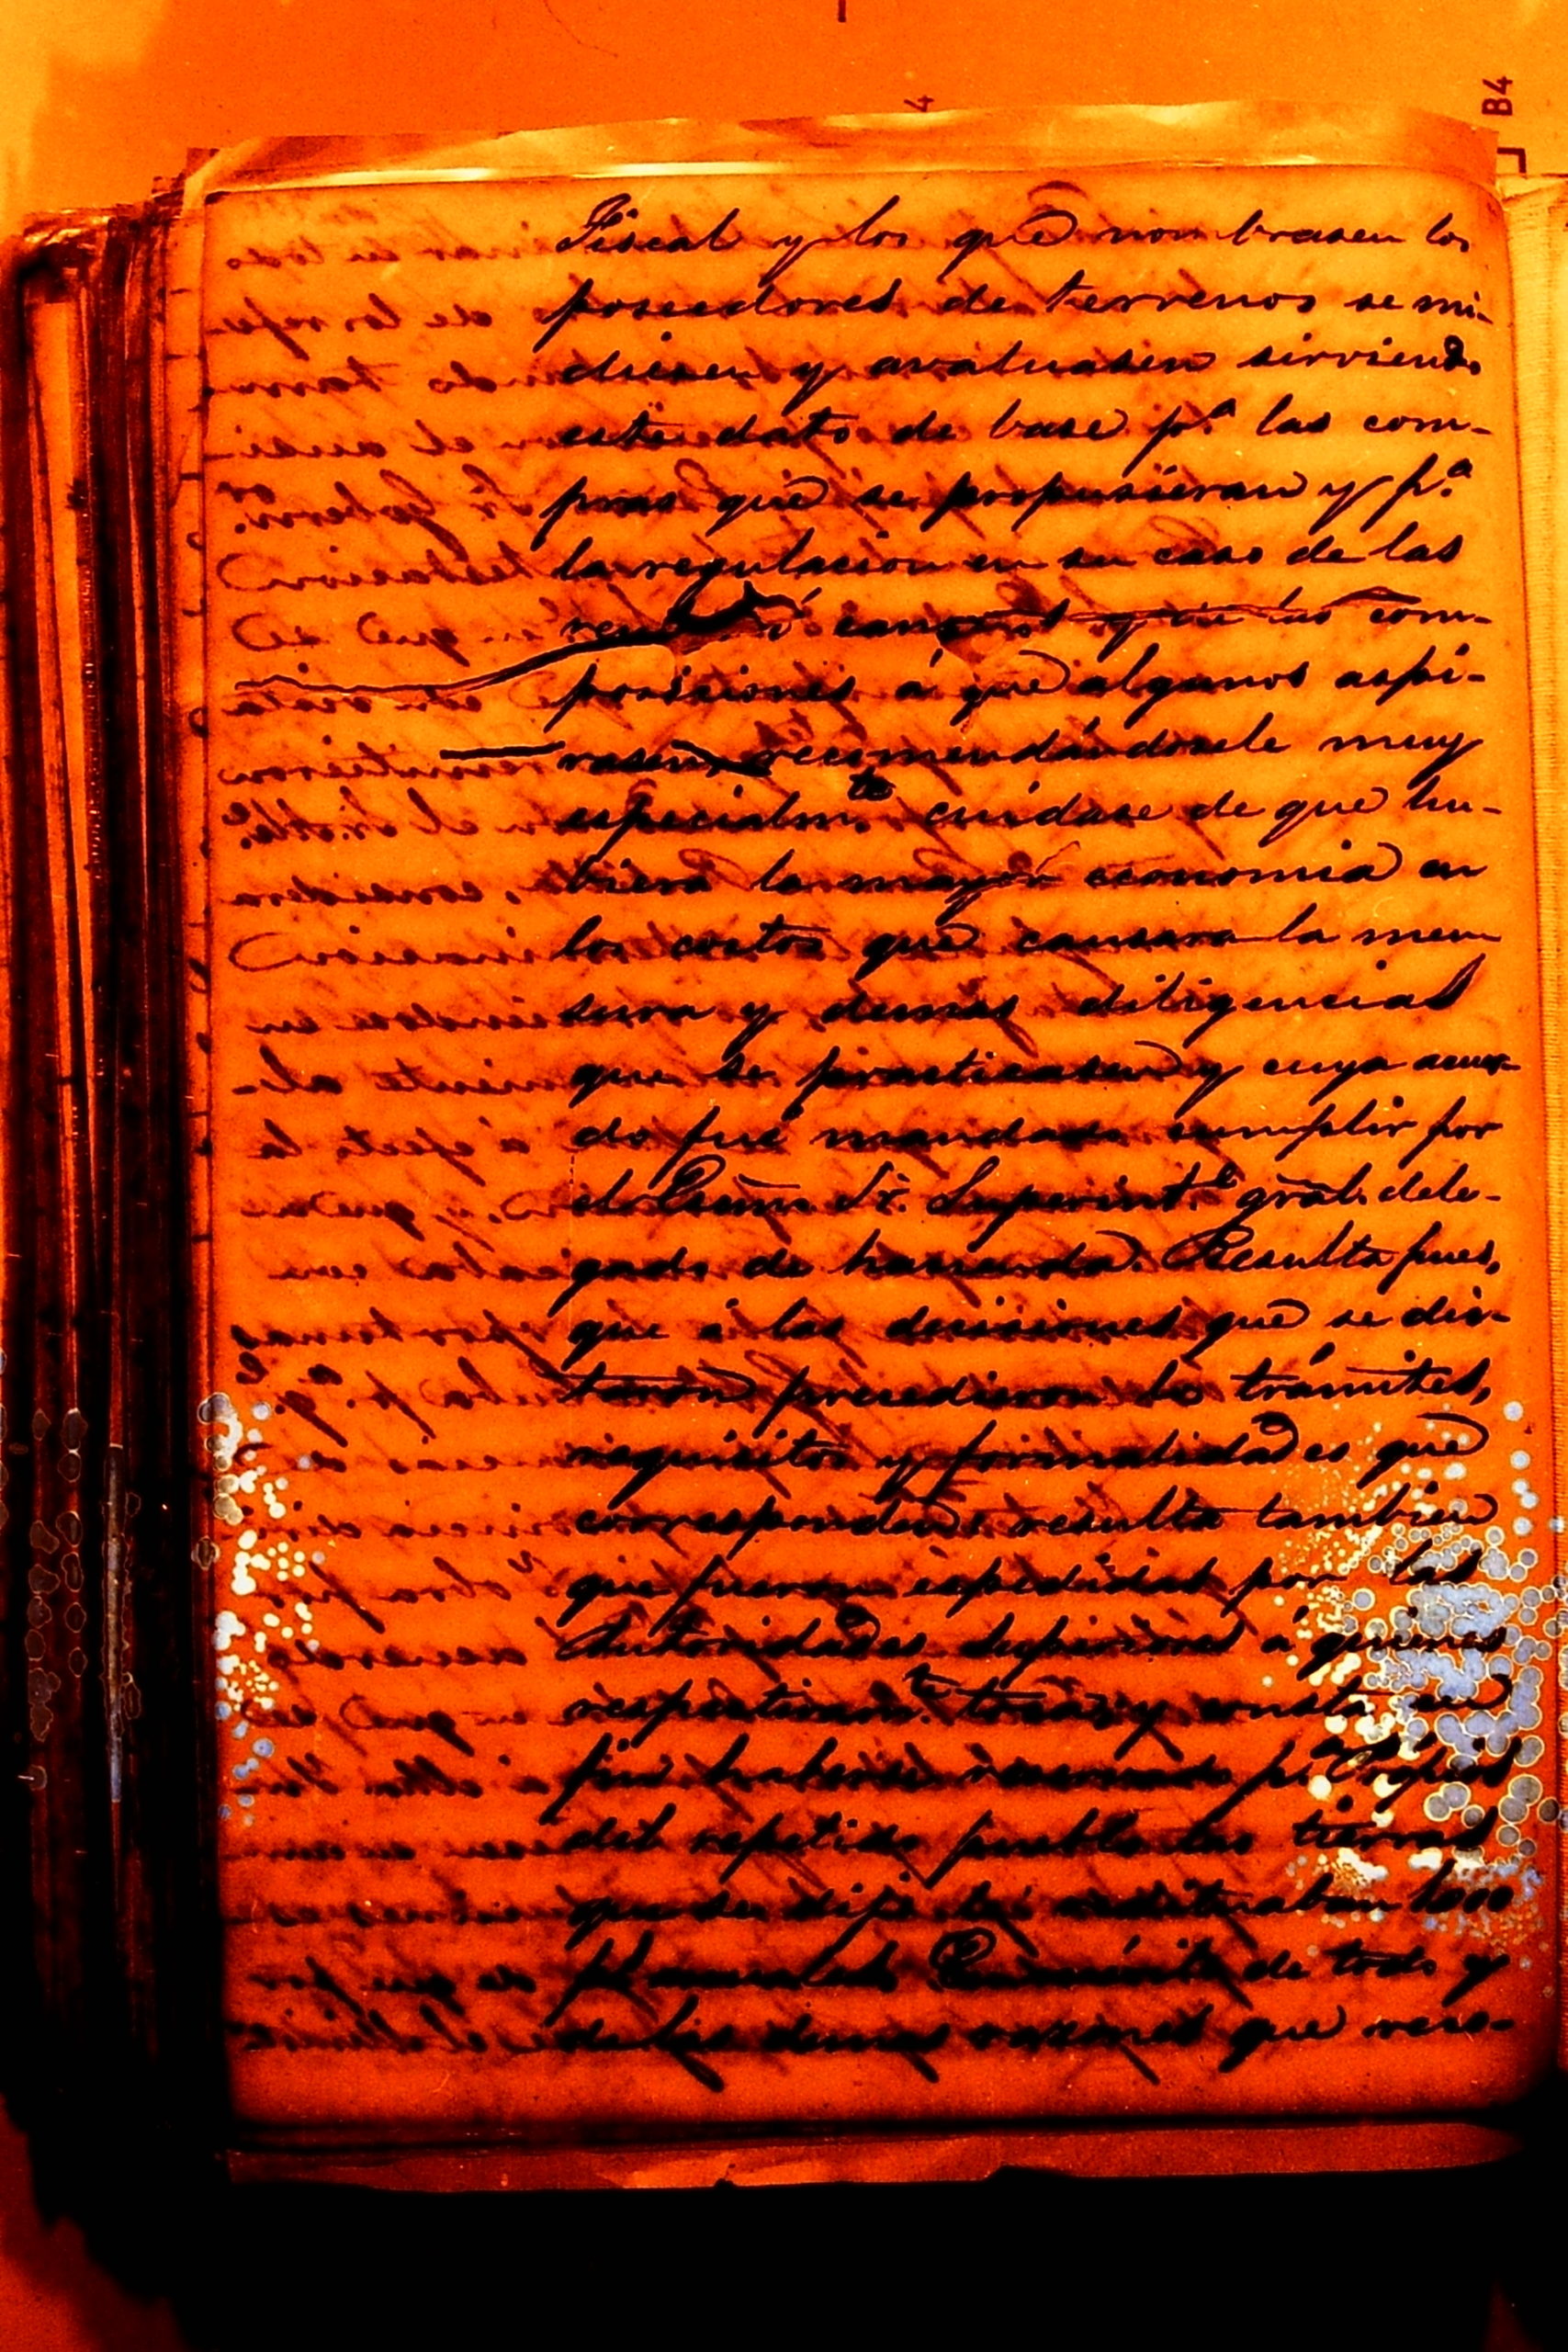 4
B4
Fiscal y los que nombrasen los
poseedores de terrenos se mi-
diesen y avaluasen sirviendo
este dato de base p.ª las com-
pras que se propusieran y p.ª
la regulacion en su caso de las
ó canones y de las com-
posiciones á que algunos aspi-
rasen, recomendándosele muy
especialm.te cuidase de que hu-
biera la mayor economia en
los costos que causara la men
sura y demas diligencias
que se practicasen y cuyo acuer-
do fué mandado cumplir por
el Exmo. Sr. Superint.e gral. dele-
gado de hacienda. Resulta pues,
que á las decisiones que se dic-
taron precedieron los trámites,
requisitos y formalidades que
corresponden, resulta tambien
que fueron espedidas por las
Autoridades superiores á quienes
respectivam.te toca, y consta en
fin haberse p.ª Propios
del repetido pueblo las tierras
que se
de todo y
de las demas razones que vers-